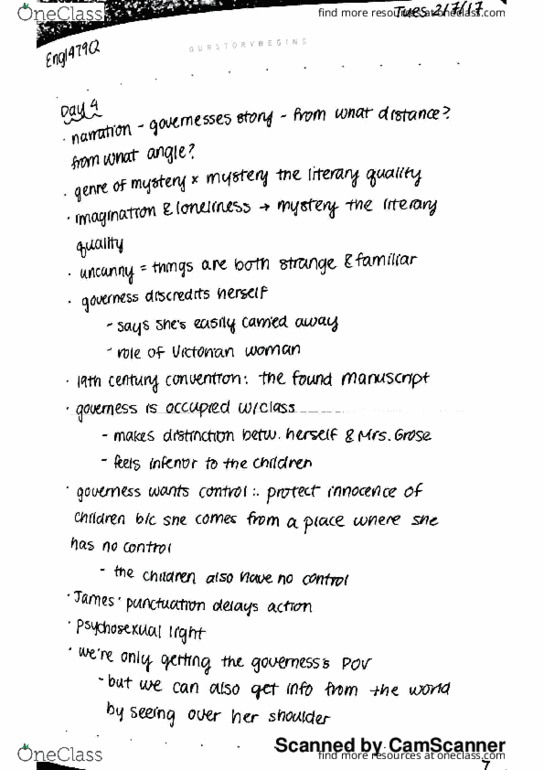 OneClass
find more resources at oneclass.com
Tues 2/7/17
Engl479Q
OURSTORYBEGINS
Day 4
· narration - governesses story - from what distance?
from what angle?
· genre of mystery x mystery the literary quality
· imagination & loneliness → mystery the literary
quality
· uncanny = things are both strange & familiar
· governess discredits herself
- says she's easily carried away
- role of Victorian woman
· 19th century convention: the found manuscript
· governess is occupied w/class
- makes distinction betw. herself & Mrs. Grose
- feels inferior to the children
· governess wants control :. protect innocence of
children b/c she comes from a place where she
has no control
- the children also have no control
· James' punctuation delays action
· psychosexual light
· we're only getting the governess's POV
- but we can also get info from the world
by seeing over her shoulder
Scanned by CamScanner
OneClass
find more resources at oneclass.com
7